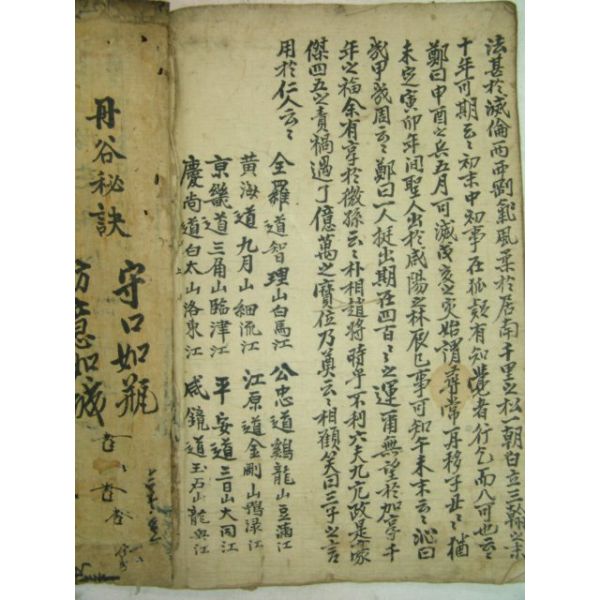 法甚於滅倫西再剛氣風柔於居南千里之松一朝白立三韓之榮
十年可期云〻初末中知事在狐疑有知覺者行乞而八可也云〻
鄭曰申酉之兵五月可滅戌亥之灾始謂尋常再移子丑〻猶
未定寅卯年間聖人出於咸陽之林辰巳事可知午未末云〻沁曰
幾甲幾周云〻鄭曰一人挺出期在四百〻之運爾無望於加享千
年之福余有享於微孫云〻朴相趙將時乎不利六夫九亢政是家
傑四五之責禍過了億萬之寶位乃奠云〻相顧笑曰三子之言
用於仁人云〻
全羅道智理山白馬江 公忠道鷄龍山豆滿江
黃海道九月山細流江 江原道金剛山鴨淥江
京畿道三角山臨津江 平安道三日山大同江
慶尚道白太山洛東江 咸鏡道玉石山龍興江
守口如瓶
丹谷秘訣
防意如城